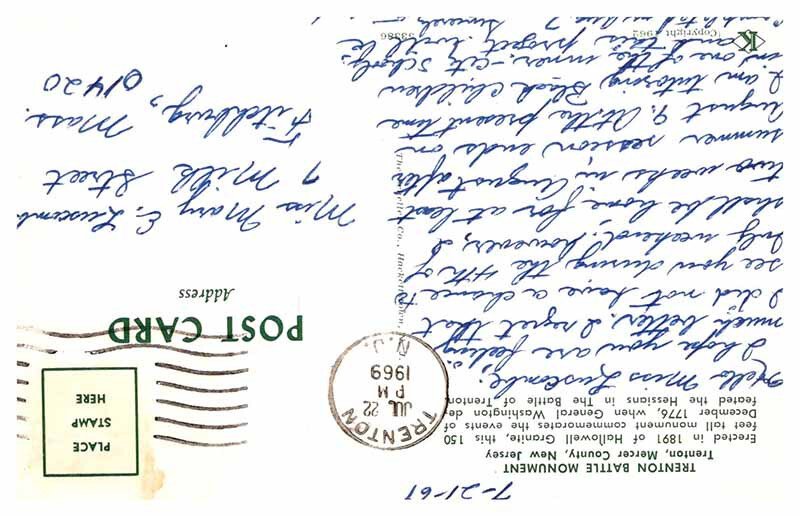 7-21-69
TRENTON BATTLE MONUMENT
Trenton, Mercer County, New Jersey
Erected in 1891 of Hallowell Granite, this 150
feet toll monument commemorates the events of
December 1776, when General Washington de-
feated the Hessians in The Battle of Trenton.
Hello Miss Luscombe;
I hope you are feeling
much better. I regret that
I did not have a chance to
see you during the 4th of
July weekend. however, I
shall be home for at least
two weeks in August after
summer session ends on
August 9. At the present time
I am tutoring Black Children
in one of the inner-city schools
and this project will be
Sincerely
K
Copyright 1962
53386
The Co., Hackettstown,
PLACE
STAMP
HERE
TRENTON
N.J.
JUL 22
PM
1969
POST CARD
Address
Miss Mary E. Luscomb
7 Milk Street
Fitchburg, Mass.
01420